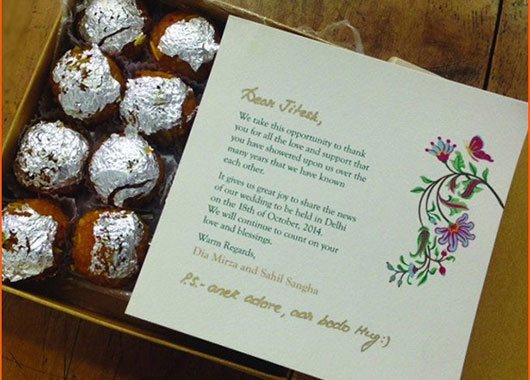 Dear Jitesh,
We take this opportunity to thank
you for all the love and support that
you have showered upon us over the
many years that we have known
each other.
It gives us great joy to share the news
of our wedding to be held in Delhi
on the 18th of October, 2014.
We will continue to count on your
love and blessings.
Warm Regards,
Dia Mirza and Sahil Sangha
P.S.- anek adore, aar bodo Hug:)